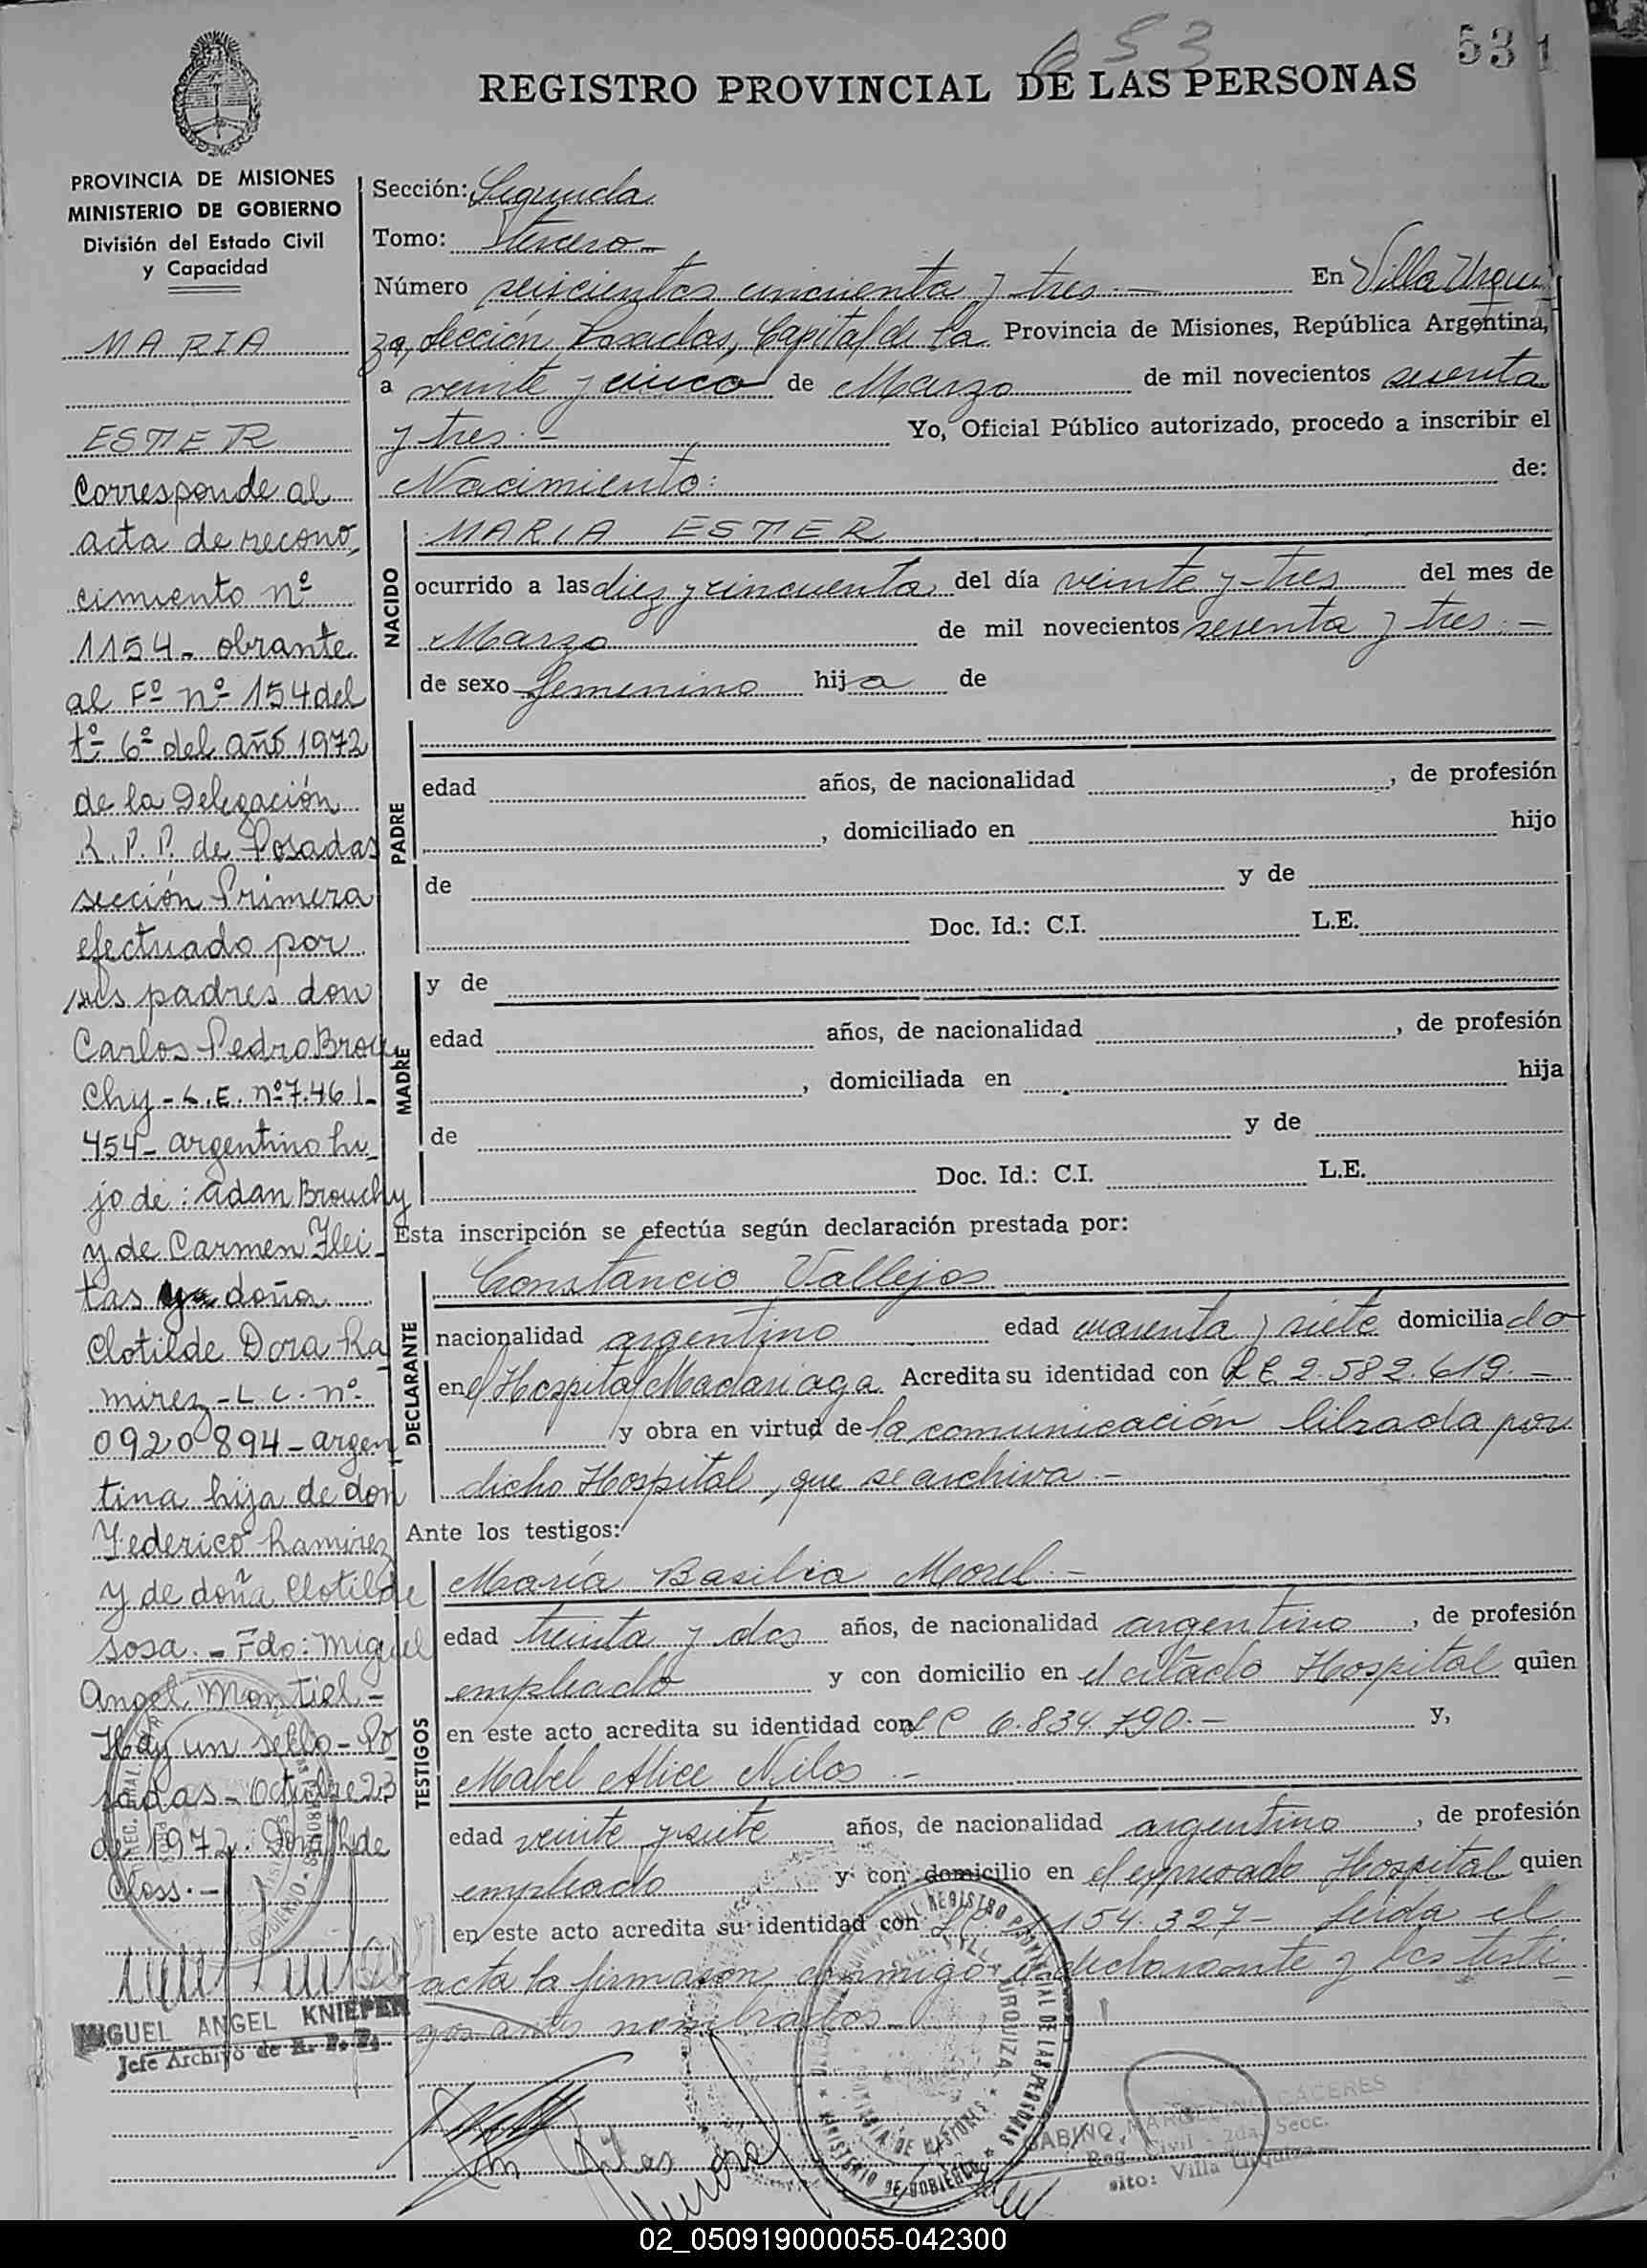 653
531
REGISTRO PROVINCIAL DE LAS PERSONAS
PROVINCIA DE MISIONES
MINISTERIO DE GOBIERNO
División del Estado Civil
y Capacidad
MARIA
ESTER
Corresponde al
acta de recono
cimiento nº
1154 - obrante
al Fº nº 154 del
tº 6º del año 1972
de la Delegación
R. P. P. de Posadas
sección Primera
efectuado por
sus padres don
Carlos Pedro Brou
chy - L.E. nº 7.461-
454 - argentino hi
jo de: Adan Brouchy
y de Carmen Flei
tas y doña
Clotilde Dora Ra
mirez - L C. nº
0920894 - argen
tina hija de don
Federico Ramirez
y de doña Clotilde
Sosa. - Fdo: Miguel
Angel Montiel -
Hay un sello - Po
sadas - Octubre 23
de 1972.
Closs. -
MIGUEL ANGEL KNIEPER
Jefe Archivo de R. P. P.
Sección: Segunda
Tomo: tercero
Número seiscientos cincuenta y tres. - En Villa Urqui
za, Sección Posadas, Capital de la Provincia de Misiones, República Argentina,
a veinte y cinco de Marzo de mil novecientos sesenta
y tres. - Yo, Oficial Público autorizado, procedo a inscribir el
Nacimiento: de:
NACIDO
MARIA ESTER
ocurrido a las diez y cincuenta del día veinte y tres del mes de
Marzo de mil novecientos sesenta y tres. -
de sexo femenino hija de
PADRE
edad años, de nacionalidad , de profesión
, domiciliado en hijo
de y de
Doc. Id.: C.I. L.E.
MADRE
y de
edad años, de nacionalidad , de profesión
, domiciliada en hija
de y de
Doc. Id.: C.I. L.E.
Esta inscripción se efectúa según declaración prestada por:
DECLARANTE
Constancio Vallejos
nacionalidad argentino edad cuarenta y siete domiciliado
en el Hospital Madariaga Acredita su identidad con L E 2.582.619. -
y obra en virtud de la comunicación librada por
dicho Hospital, que se archiva. -
Ante los testigos:
TESTIGOS
María Basilia Morel. -
edad treinta y dos años, de nacionalidad argentino , de profesión
empleado y con domicilio en el citado Hospital quien
en este acto acredita su identidad con L C 6.834.790. - y,
Mabel Alice Nilos. -
edad veinte y siete años, de nacionalidad argentino , de profesión
empleado y con domicilio en el expresado Hospital quien
en este acto acredita su identidad con 154.327 - Leída el
acta la firmaron conmigo el declarante y los testi
gos antes nombrados -
REGISTRO PROVINCIAL DE LAS PERSONAS
MINISTERIO DE GOBIERNO
PROVINCIA DE MISIONES
URQUIZA
GABINO MARCELINO CACERES
Reg. Civil - 2da. Secc.
sito: Villa Urquiza
02_050919000055-042300